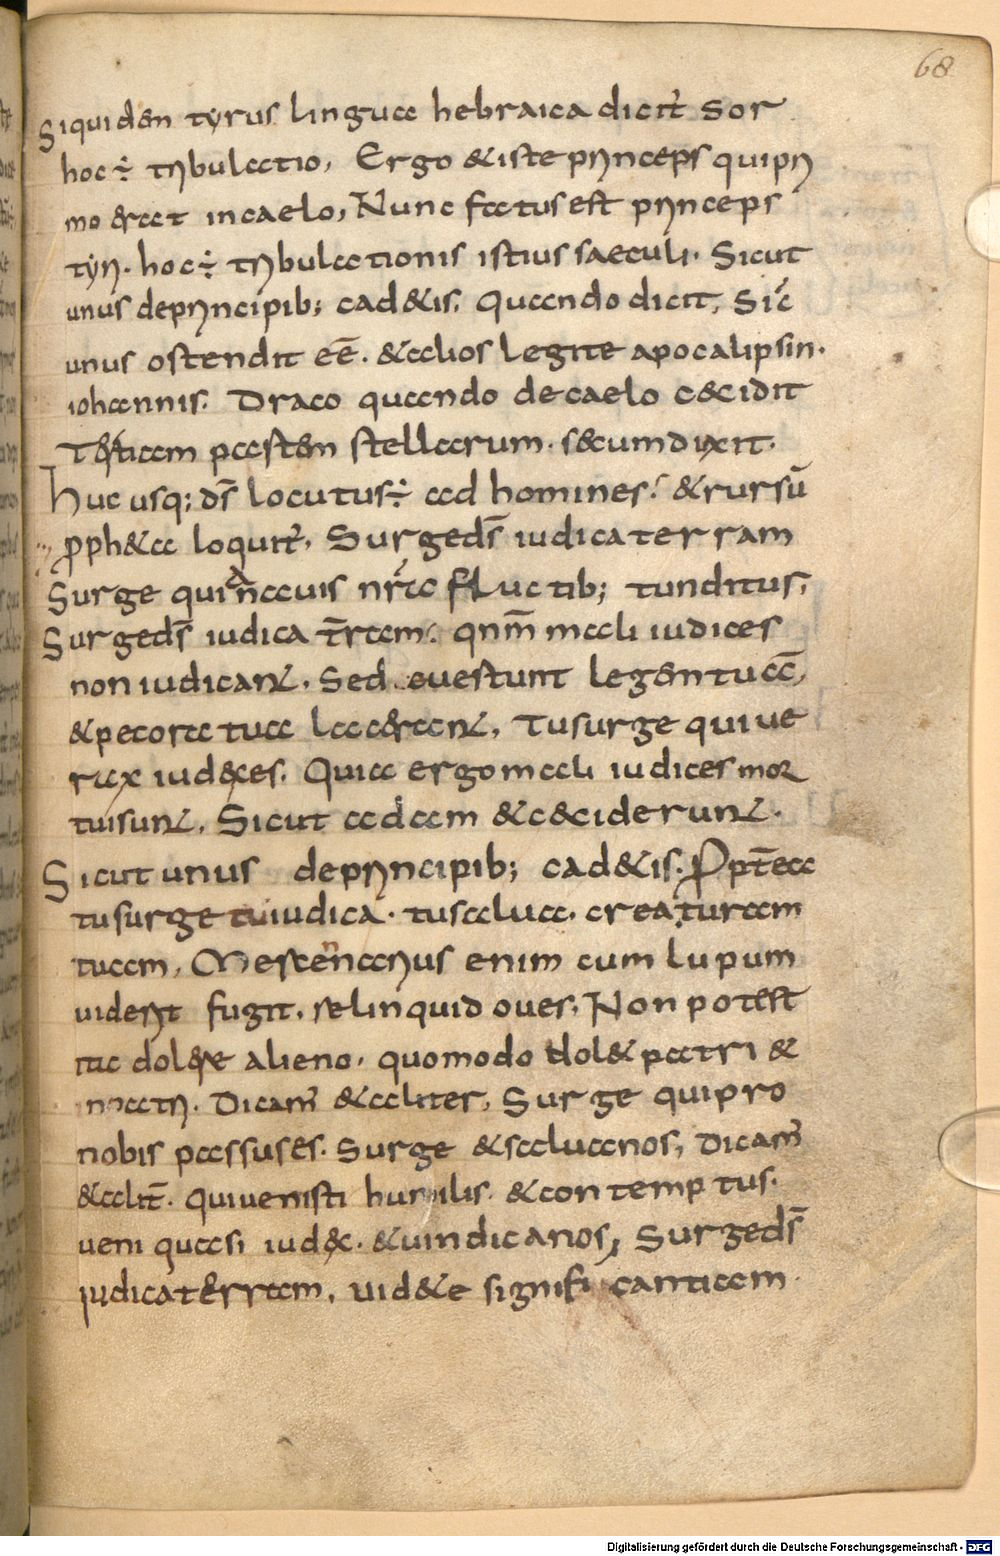 68
Siquidem tyrus lingua hebraica dicit̃ sor
hoc ÷ tribulatio, Ergo &iste princeps quipri
mo erat incaelo, Nunc factus est princeps
tyri. hoc ÷ tribulationis istius saeculi. Sicut
unus deprincipib; cad&is. Quando dicit, Sic
unus ostendit eē. &alios legite apocalipsin.
iohannis. Draco quando decaelo cecidit
Tertiam partem stellarum. secum dixit.
huc usq; ds̄ locutus ÷ ad homines. &rursū
proph&a loquit̃. Surgeds̄ iudica terram
Surge qui nauis nr̄ae fluctib; tunditus,
Surgeds̄ iudica t̄rram. qnm̄ mali iudices
non iudicant. Sed euestunt legem tuā,
&pecora tua lacerant, Tusurge quiue
rax iudex es. Quia ergo mali iudices mor
tuisunt, Sicut adam &ceciderunt.
Sicut unus deprincipib; cad&is. Propt̄ea
tusurge tuiudica. tusalua. creaturam
tuam, Mercennarius enim cum lupum
uiderit fugit. relinquid oues, Non potest
sic dolere alieno. quomodo dol& patri &
nocatri. Dicam̃ &aliter, Surge quipro
nobis passuses. Surge &saluanos, dicam̃
&alit̄. quiuenisti humilis. &contemptus.
ueni quasi iudex. &uindicanos, Surgeds̄
iudicaterram, uid&e significantiam
Digitalisierung gefördert durch die Deutsche Forschungsgemeinschaft - DFG